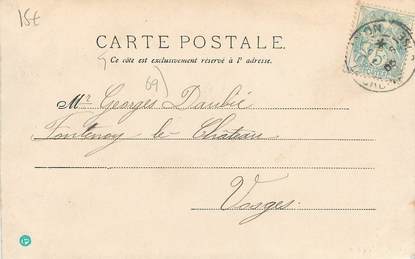 15t
CARTE POSTALE.
Ce côté est exclusivement réservé à l'adresse.
69
Mr. Georges Daubié
Fontenoy-le-Château
Vosges.